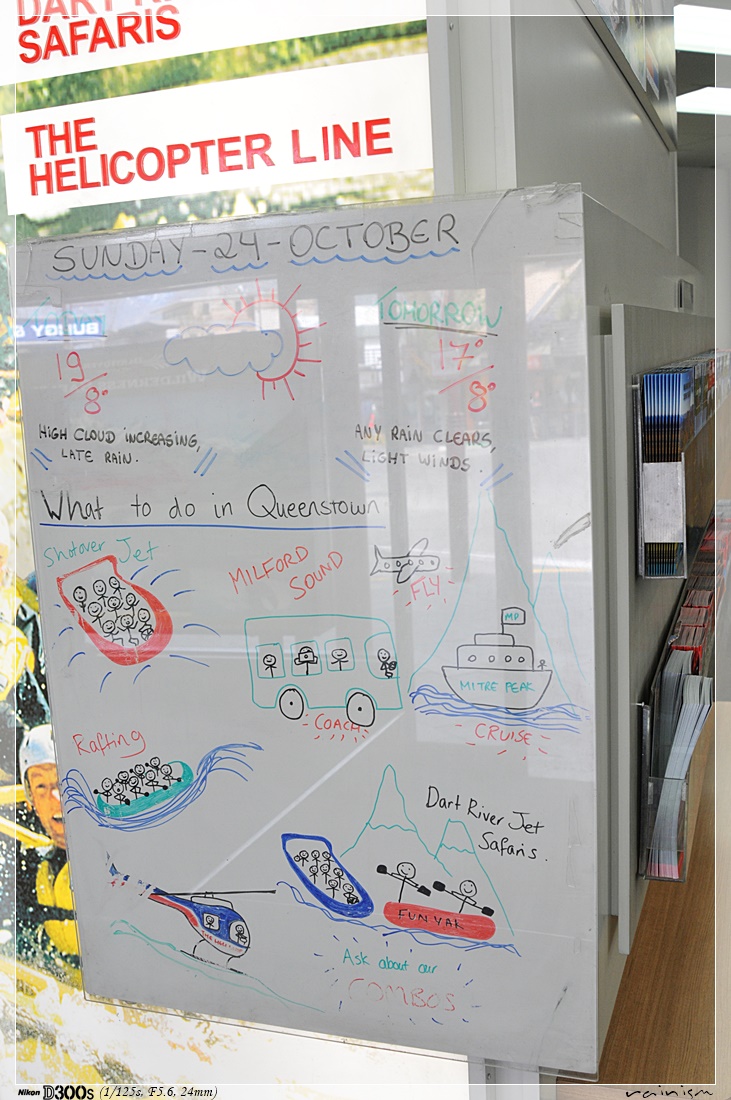 SAFARIS
THE
HELICOPTER LINE
SUNDAY-24-OCTOBER
TOMORROW
19/8°
17°/8°
HIGH CLOUD INCREASING,
LATE RAIN.
ANY RAIN CLEARS,
LIGHT WINDS.
What to do in Queenstown
Shotover Jet
MILFORD
SOUND
FLY
MP
MITRE PEAK
COACH
CRUISE
Rafting
Dart River Jet
Safaris.
FUNYAK
Ask about our
COMBOS
Nikon D300s (1/125s, F5.6, 24mm)
rainism